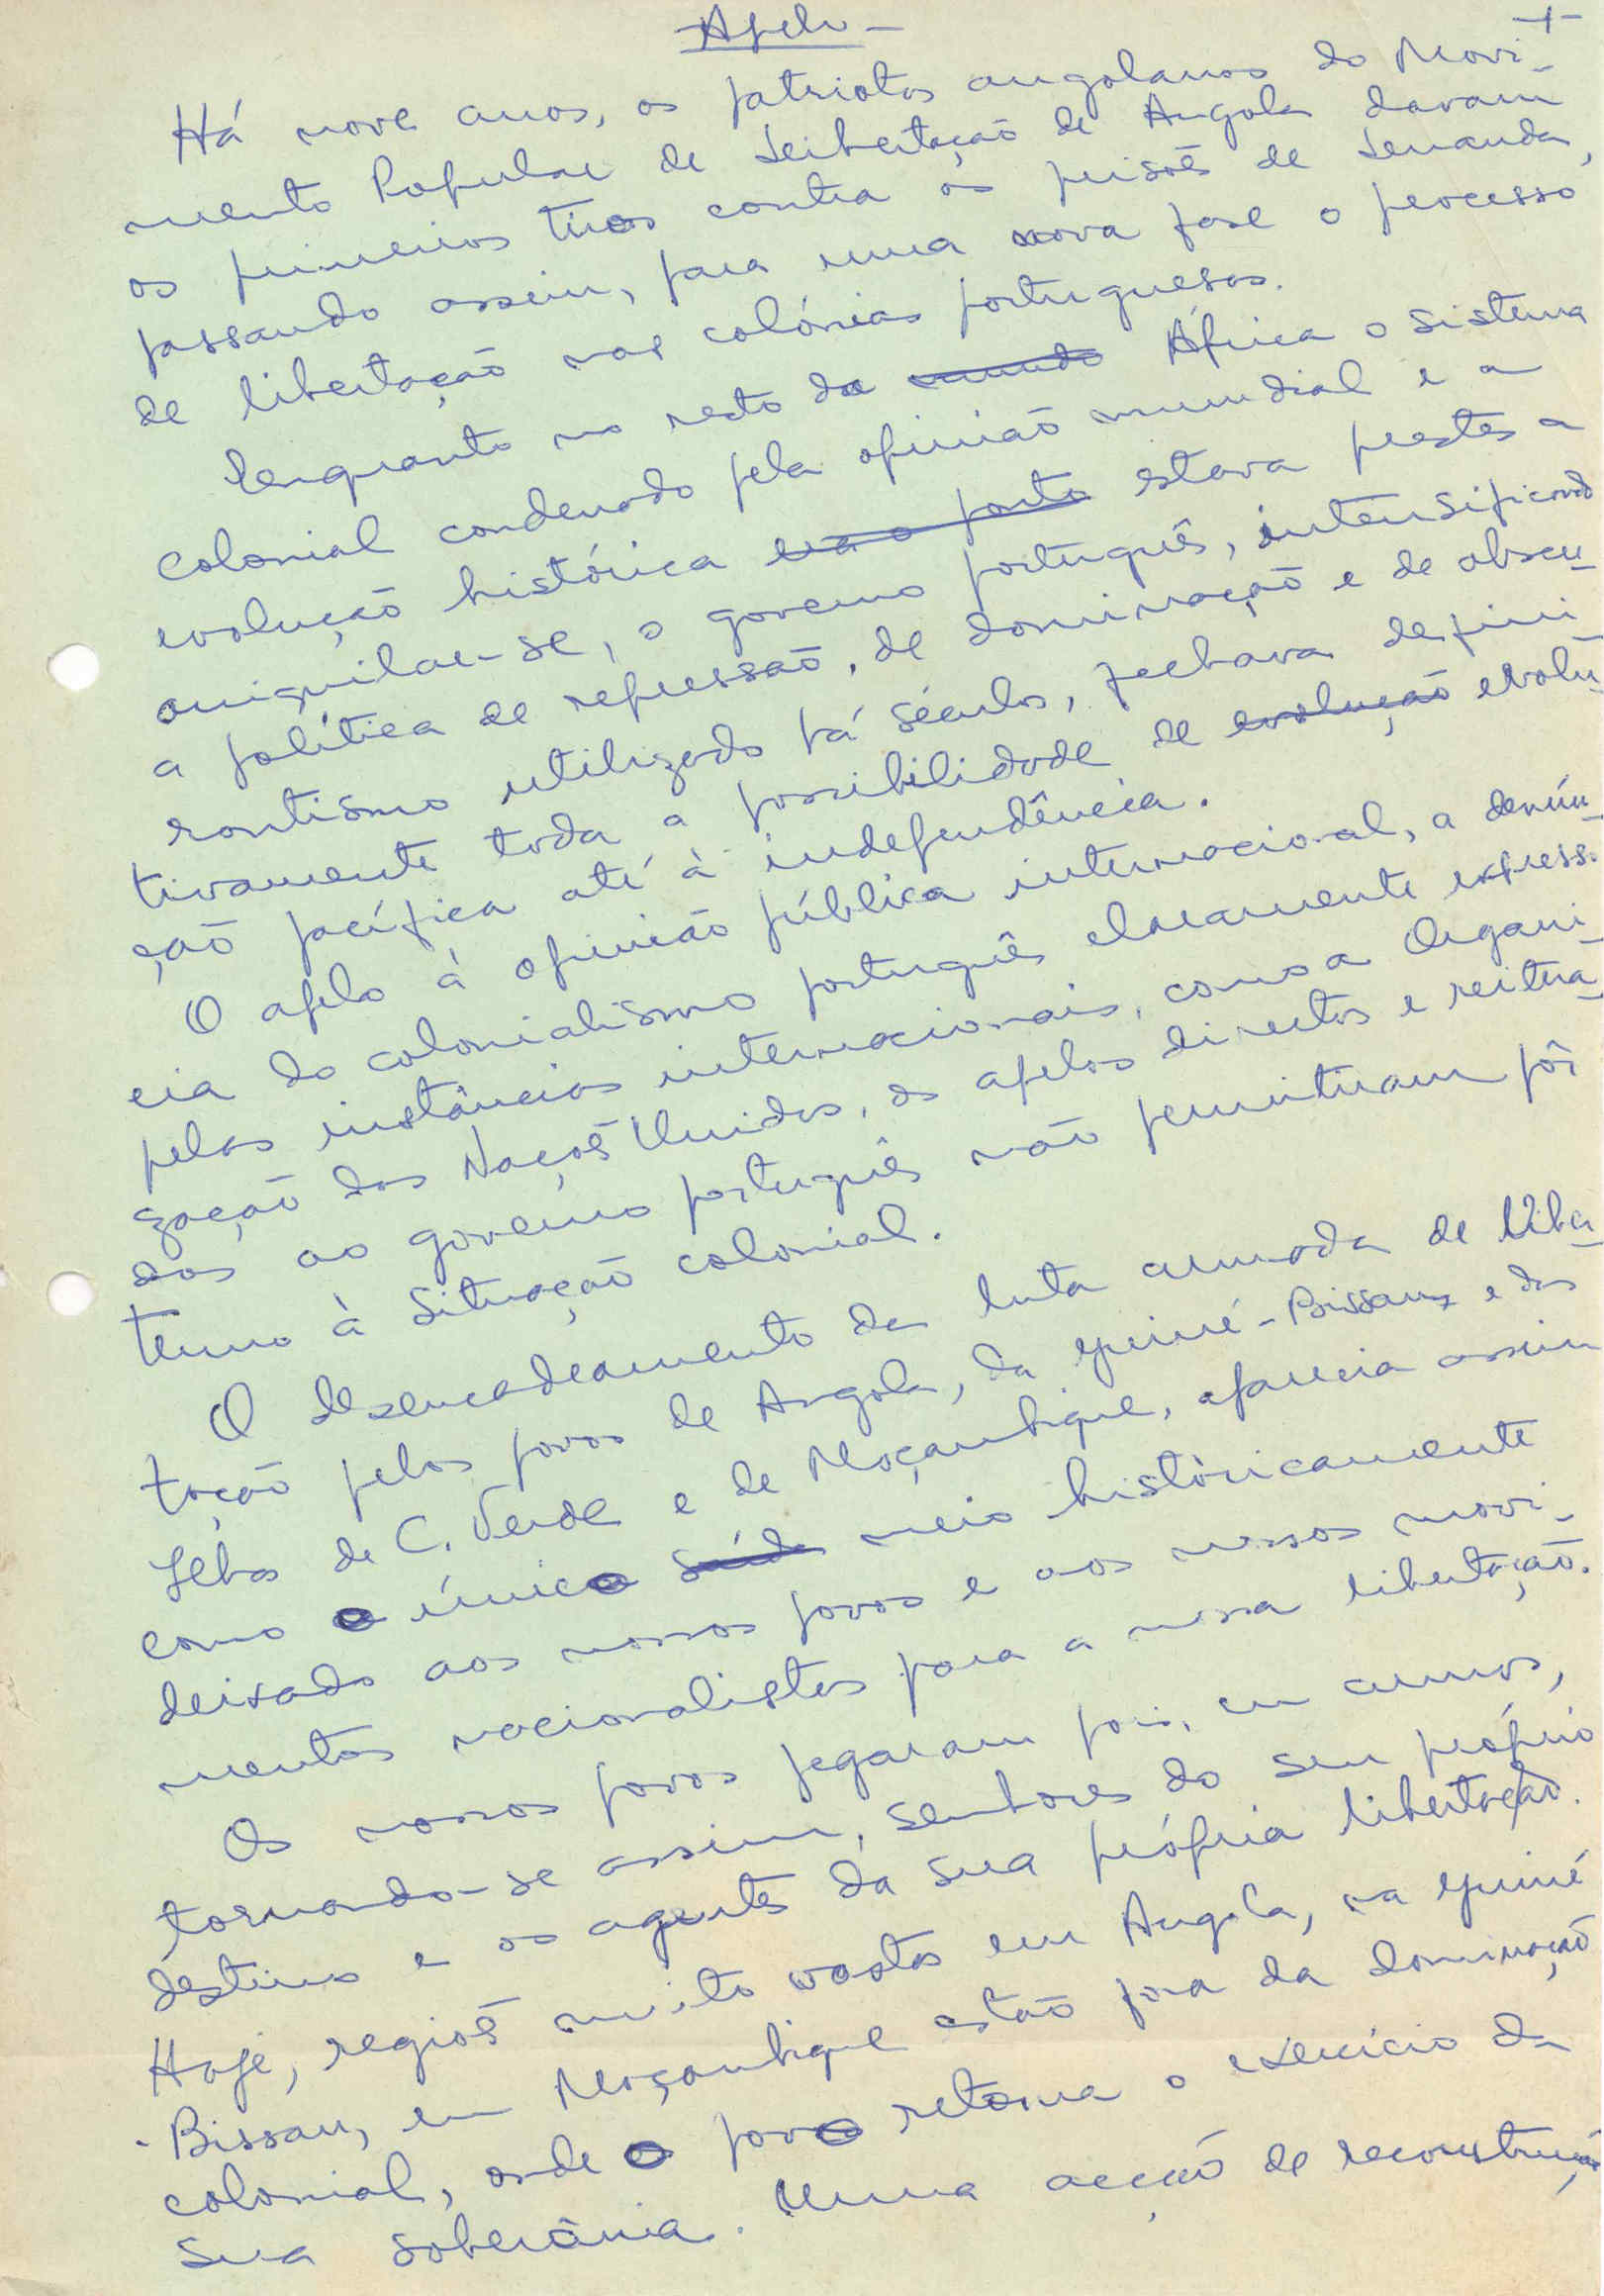 - Apelo -
-1-
Há nove anos, os patriotas angolanos do Movi-
mento Popular de Libertação de Angola davam
os primeiros tiros contra as prisões de Luanda,
passando assim, para uma nova fase o processo
de libertação nas colónias portuguesas.
Enquanto no resto da mundo África o sistema
colonial condenado pela opinião mundial e a
evolução histórica era o ponto estava prestes a
aniquilar-se, o governo português, intensificando
a política de repressão, de dominação e de obscu-
rantismo utilizado há séculos, fechava defini-
tivamente toda a possibilidade de evolução evolu-
ção pacífica até à independência.
O apelo à opinião pública internacional, a denún-
cia do colonialismo português claramente express.
pelas instâncias internacionais, como a Organi-
zação das Nações Unidas, os apelos directos e reitera-
dos ao governo português não permitiram pôr
termo à situação colonial.
O desencadeamento da luta armada de liber-
tação pelos povos de Angola, da Guiné-Bissau, e das
Ilhas de C. Verde e de Moçambique, aparecia assim
como o único saída meio històricamente
deixado aos nossos povos e aos nossos movi-
mentos nacionalistas para a nossa libertação.
Os nossos povos pegaram pois, em armas,
tornando-se assim, senhores do seu próprio
destino e os agentes da sua própria libertação.
Hoje, regiões muito vastas em Angola, na Guiné
-Bissau, em Moçambique estão fora da dominação
colonial, onde o povo retoma o exercício da
sua soberania. Uma acção de reconstrução